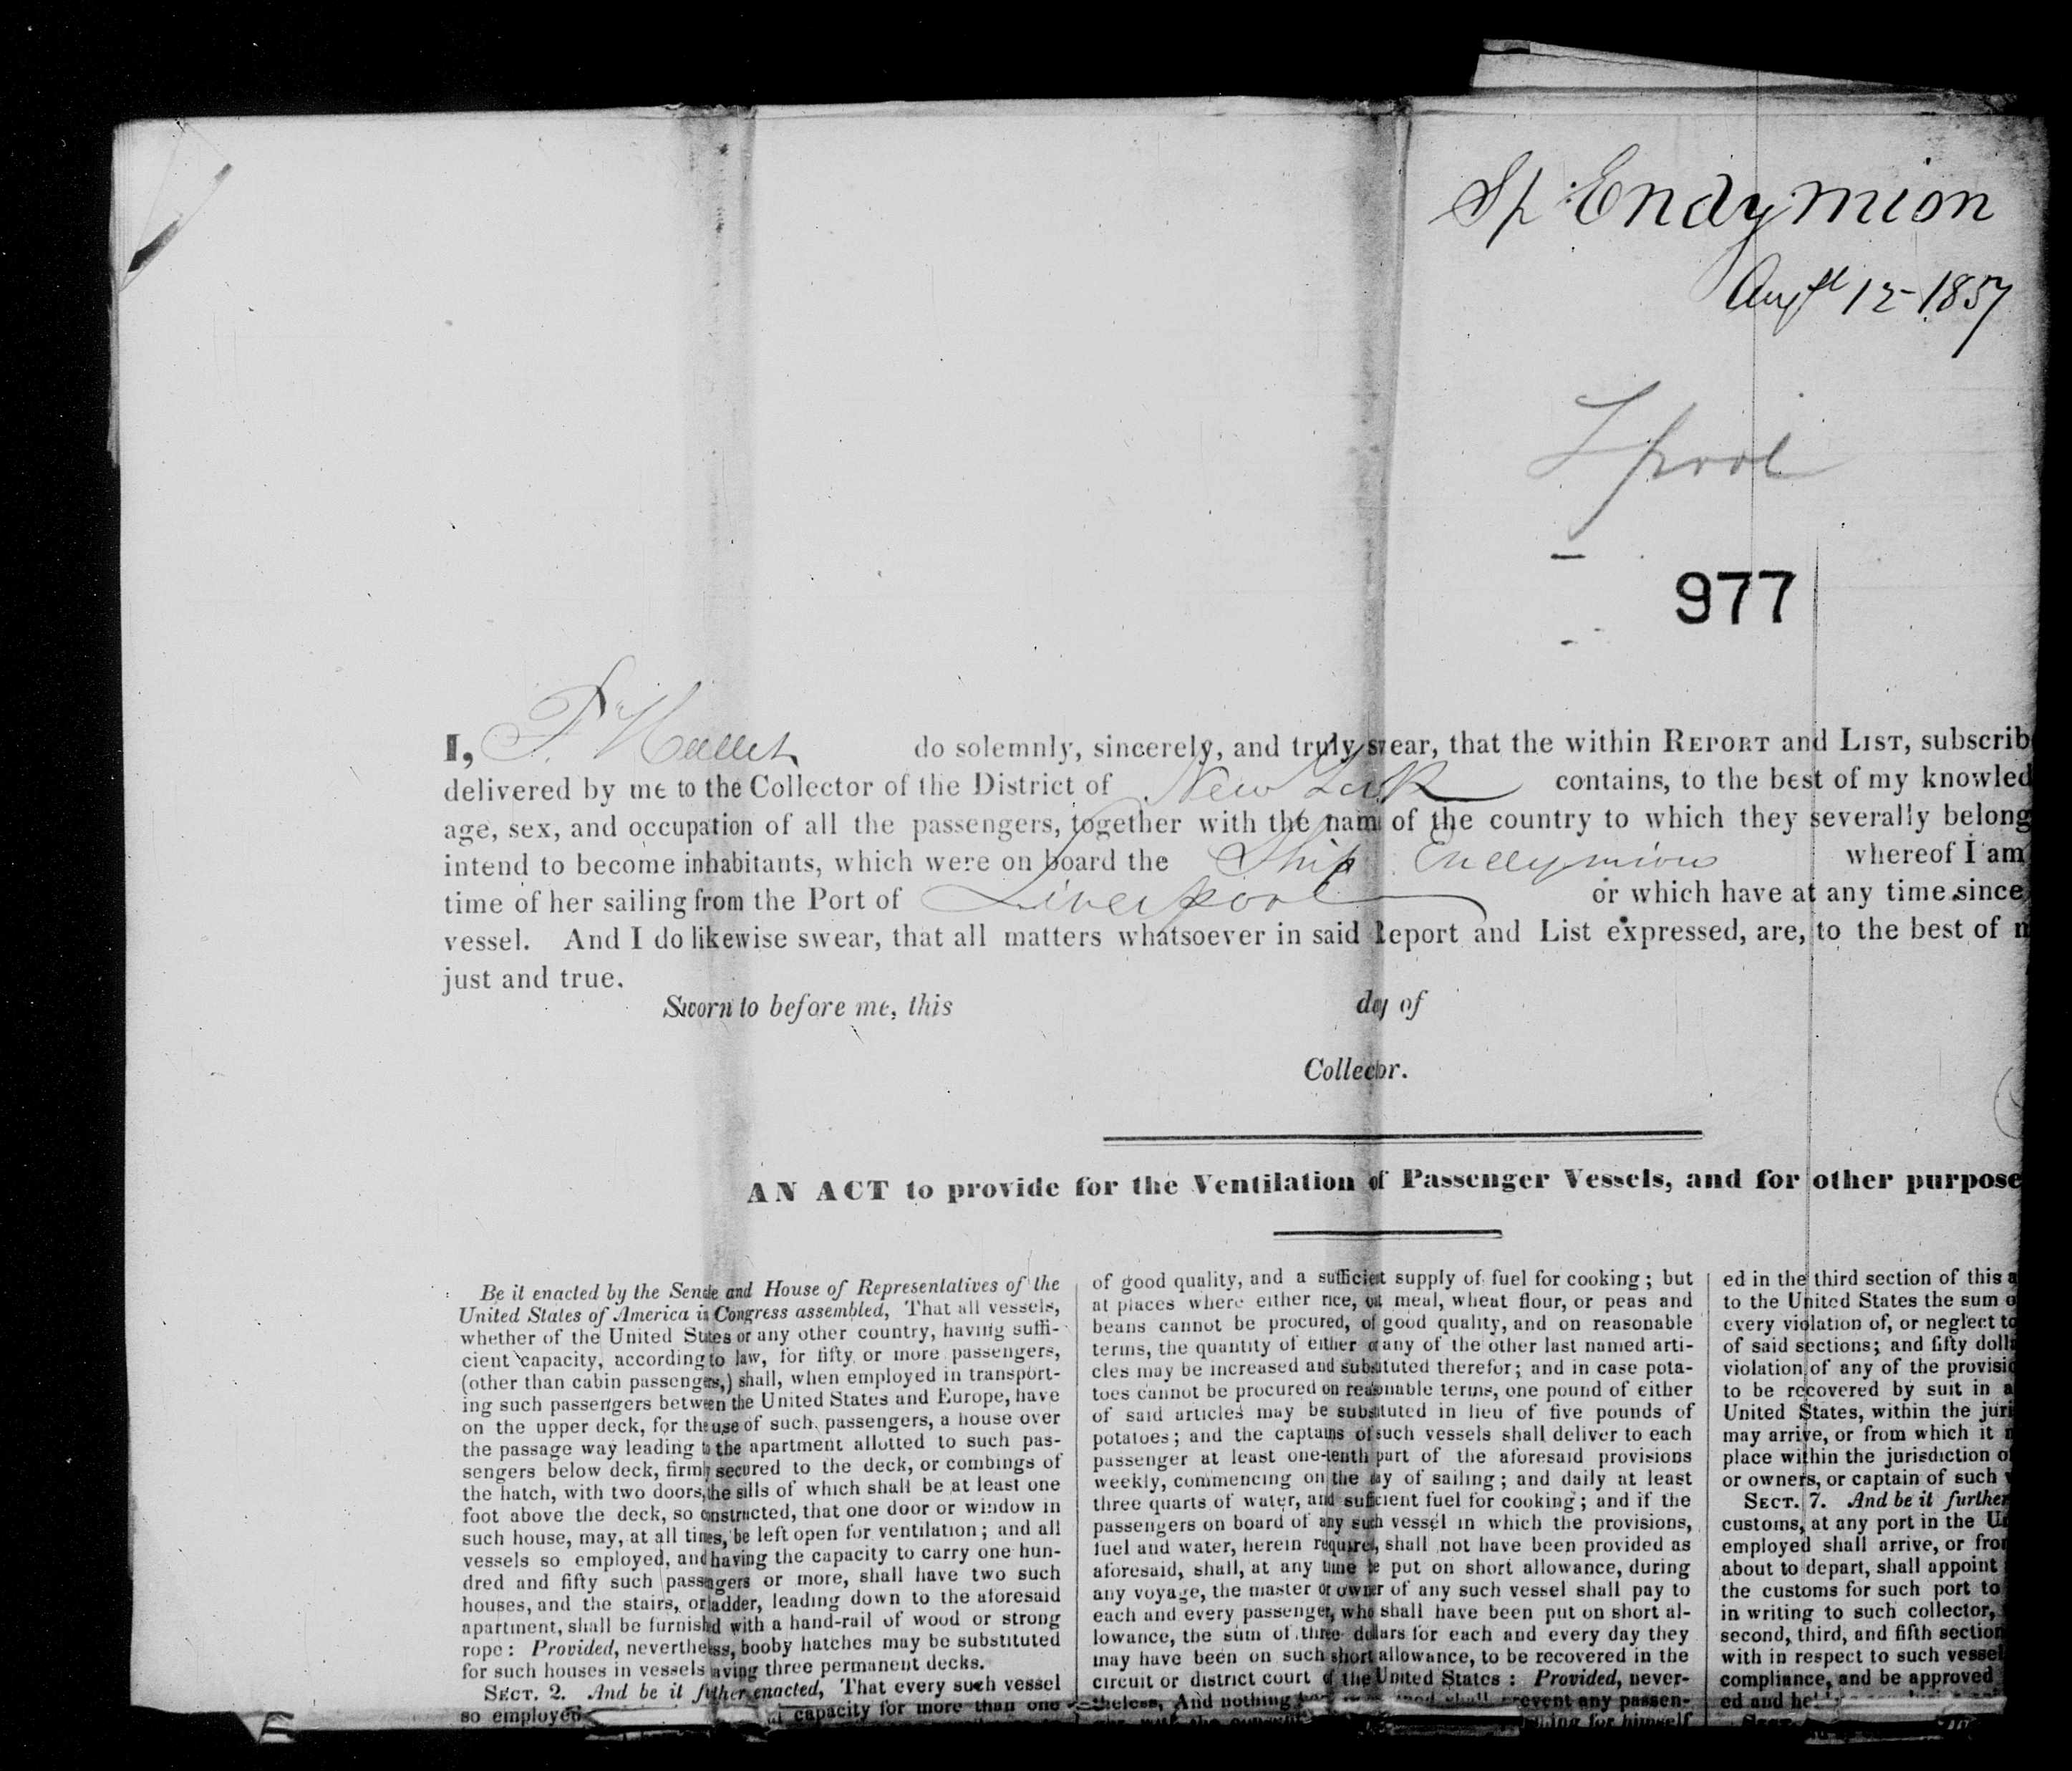 Sp Endymion
Augst 12-1857
Lpool
977
I, F. Hallet do solemnly, sincerely, and truly swear, that the within REPORT and LIST, subscrib
delivered by me to the Collector of the District of New York contains, to the best of my knowled
age, sex, and occupation of all the passengers, together with the nam of the country to which they severally belong
intend to become inhabitants, which were on board the Ship Endymion whereof I am
time of her sailing from the Port of Liverpool or which have at any time since
vessel. And I do likewise swear, that all matters whatsoever in said Report and List expressed, are, to the best of m
just and true.
Sworn to before me, this day of
Collector.
AN ACT to provide for the Ventilation of Passenger Vessels, and for other purpose
Be it enacted by the Senate and House of Representatives of the
United States of America in Congress assembled, That all vessels,
whether of the United States or any other country, having suffi-
cient capacity, according to law, for fifty or more passengers,
(other than cabin passengers,) shall, when employed in transport-
ing such passengers between the United States and Europe, have
on the upper deck, for the use of such passengers, a house over
the passage way leading to the apartment allotted to such pas-
sengers below deck, firmly secured to the deck, or combings of
the hatch, with two doors, the sills of which shall be at least one
foot above the deck, so constructed, that one door or window in
such house, may, at all times, be left open for ventilation; and all
vessels so employed, and having the capacity to carry one hun-
dred and fifty such passengers or more, shall have two such
houses, and the stairs, or ladder, leading down to the aforesaid
apartment, shall be furnished with a hand-rail of wood or strong
rope: Provided, nevertheless, booby hatches may be substituted
for such houses in vessels having three permanent decks.
SECT. 2. And be it further enacted, That every such vessel
so employed capacity for more than one
of good quality, and a sufficient supply of fuel for cooking; but
at places where either rice, oat meal, wheat flour, or peas and
beans cannot be procured, of good quality, and on reasonable
terms, the quantity of either or any of the other last named arti-
cles may be increased and substituted therefor; and in case pota-
toes cannot be procured on reasonable terms, one pound of either
of said articles may be substituted in lieu of five pounds of
potatoes; and the captains of such vessels shall deliver to each
passenger at least one-tenth part of the aforesaid provisions
weekly, commencing on the day of sailing; and daily at least
three quarts of water, and sufficient fuel for cooking; and if the
passengers on board of any such vessel in which the provisions,
fuel and water, herein required, shall not have been provided as
aforesaid, shall, at any time be put on short allowance, during
any voyage, the master or owner of any such vessel shall pay to
each and every passenger, who shall have been put on short al-
lowance, the sum of three dollars for each and every day they
may have been on such short allowance, to be recovered in the
circuit or district court of the United States: Provided, never-
theless, And nothing shall prevent any passen-
for himself
ed in the third section of this a
to the United States the sum o
every violation of, or neglect to
of said sections; and fifty dolla
violation of any of the provisio
to be recovered by suit in a
United States, within the juri
may arrive, or from which it m
place within the jurisdiction o
or owners, or captain of such v
SECT. 7. And be it further
customs, at any port in the Un
employed shall arrive, or from
about to depart, shall appoint
the customs for such port to
in writing to such collector,
second, third, and fifth section
with in respect to such vessel
compliance, and be approved
ed and he